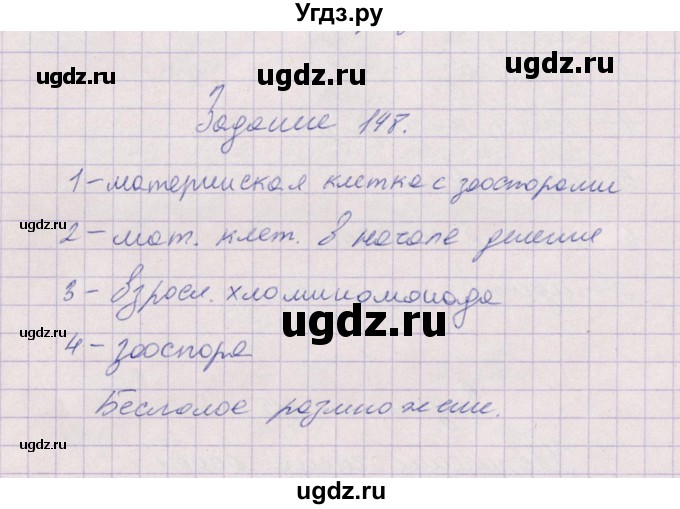 Угдз.ру
ugdz.ru ugdz.ru ugdz.ru
Задание 148.
1 - материнская клетка с зооспорами
ugdz.ru
2 - мат. клет. в начале деления
3 - взросл. хломиномонада
ugdz.ru
ugdz.ru
4 - зооспора
Бесполое размножение.
ugdz.ru
ugdz.ru